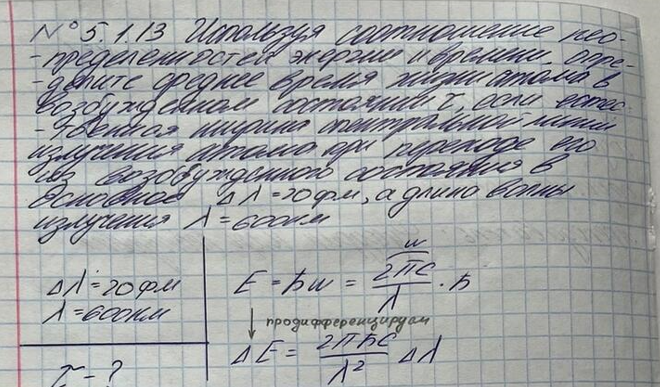 N°5.1.13 Используя соотношение нео-
-пределенностей энергии и времени, опре-
-делите среднее время жизни атома в
возбужденном состоянии τ, если естес-
-твенная ширина спектральной линии
излучения атома при переходе его
из возбужденного состояния в
основное Δλ = 20фм, а длина волны
излучения λ = 600нм
Δλ = 20фм
λ = 600нм
τ - ?
w
E = ħw = 2πc/λ · ħ
↓ продифференцируем
ΔE = 2πħc/λ² Δλ